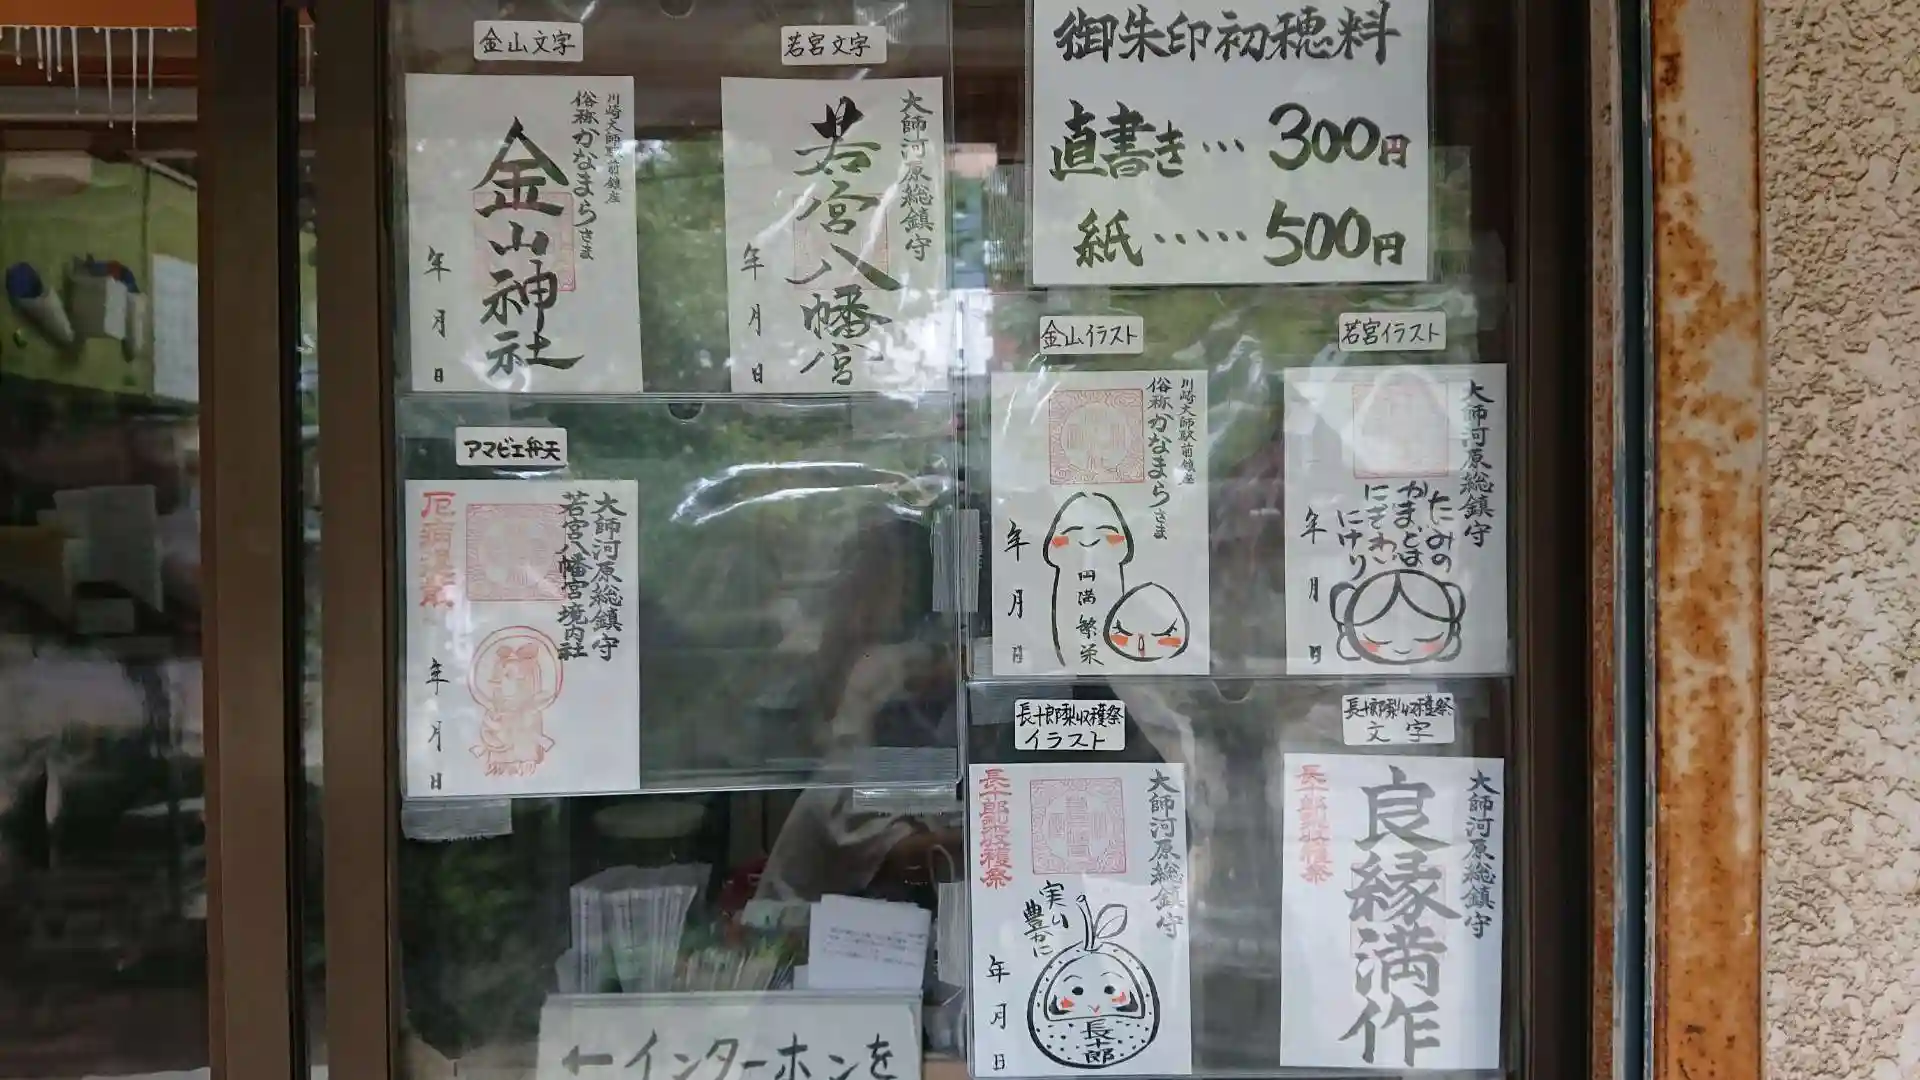 金山文字
川崎大師駅前鎮座
俗称かなまらさま
金山神社
年
月
日
若宮文字
大師河原総鎮守
若宮八幡宮
年
月
日
御朱印初穂料
直書き…300円
紙……500円
金山イラスト
川崎大師駅前鎮座
俗称かなまらさま
円満繁栄
年
月
日
若宮イラスト
大師河原総鎮守
たみの
かまどは
にぎわい
にけり
年
月
日
アマビエ弁天
大師河原総鎮守
若宮八幡宮境内社
年
月
日
長十郎梨収穫祭
イラスト
大師河原総鎮守
実り
豊かに
長十郎
長十郎梨収穫祭
年
月
日
長十郎梨収穫祭
文字
大師河原総鎮守
良縁満作
長十郎梨収穫祭
←インターホンを